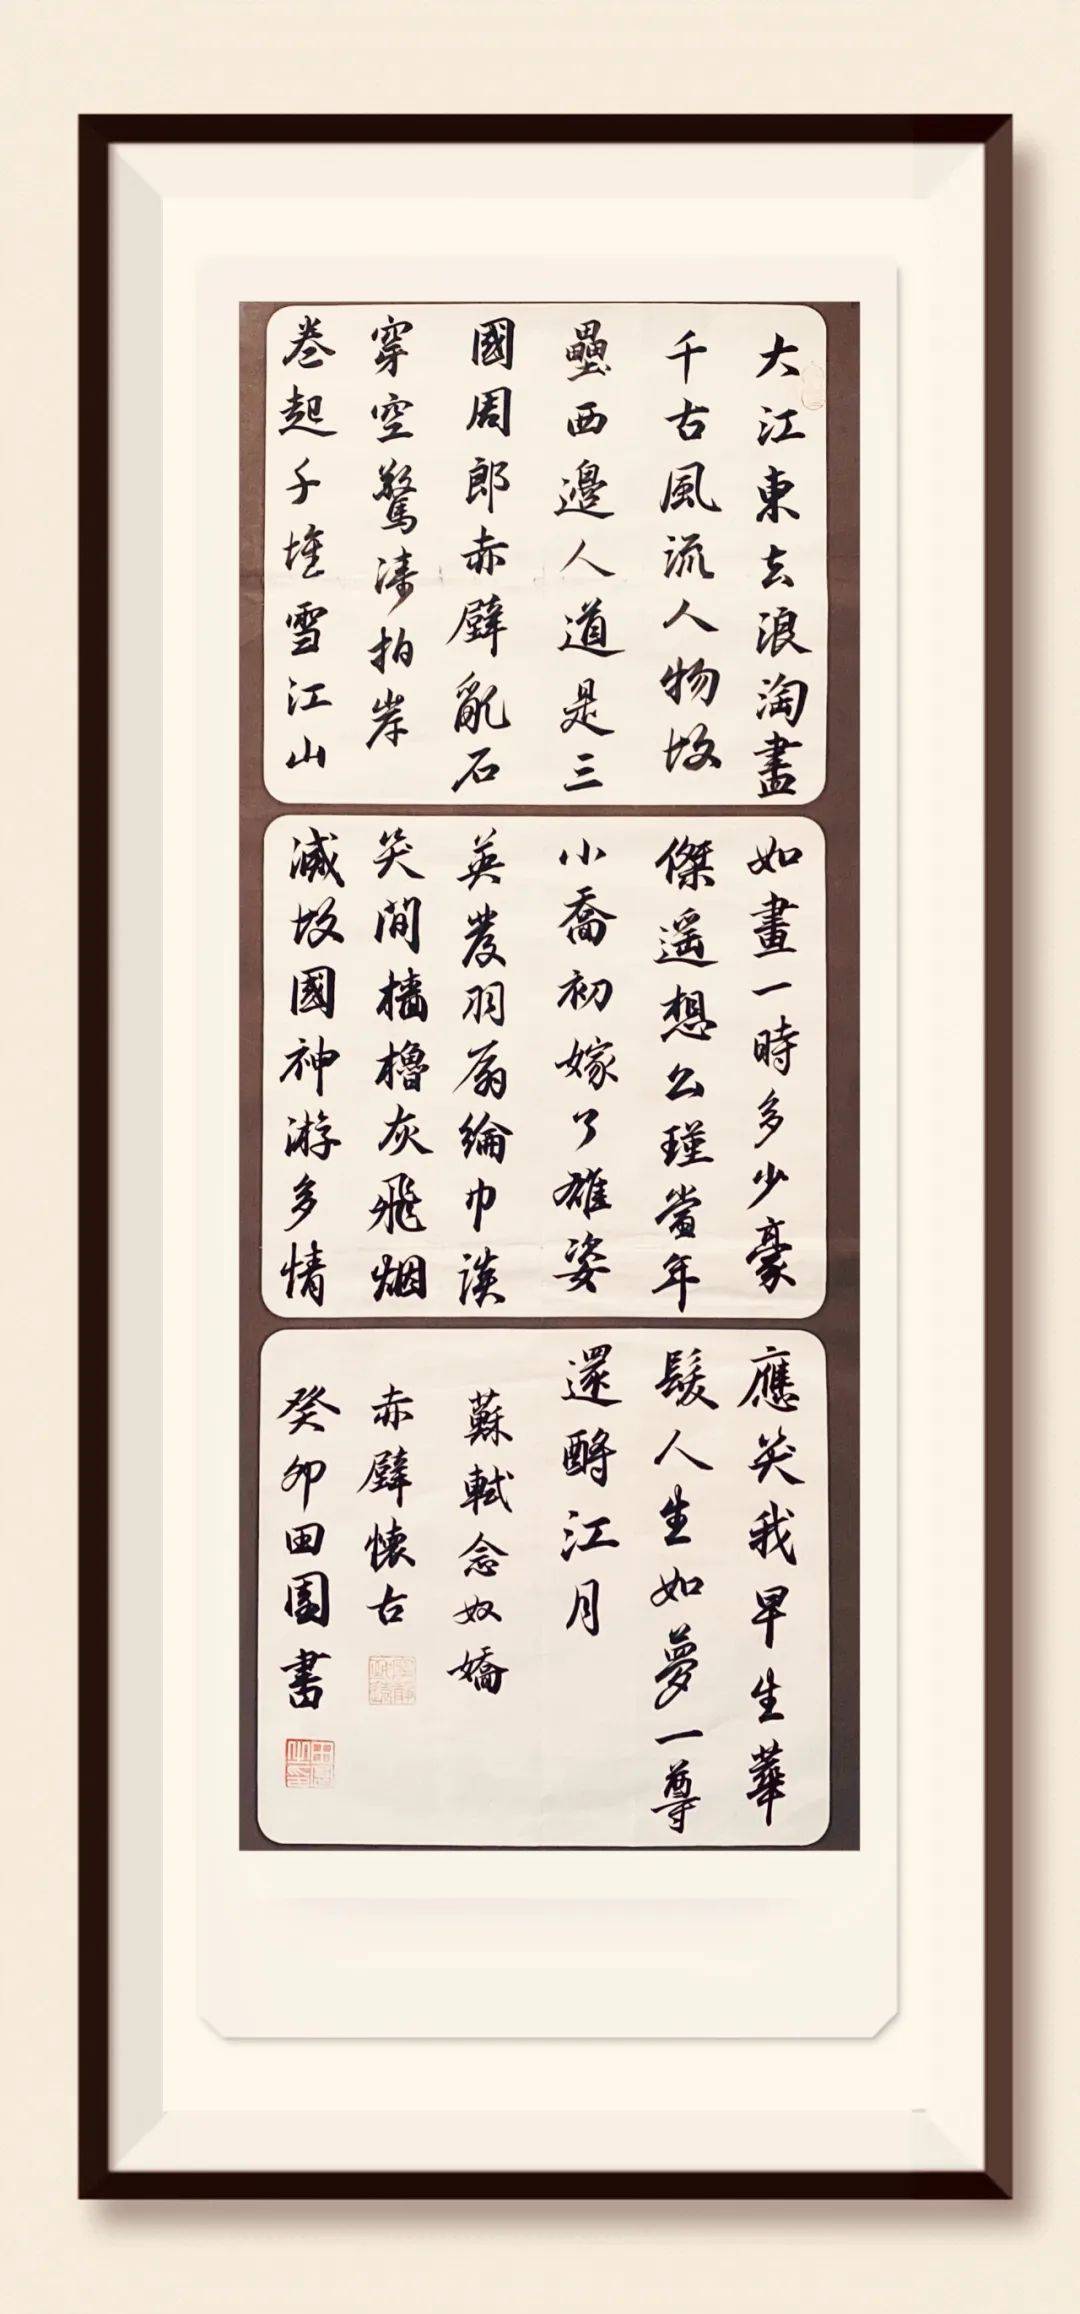 大江東去浪淘盡
千古風流人物故
壘西邊人道是三
國周郎赤壁亂石
穿空驚濤拍岸
卷起千堆雪江山
如畫一時多少豪
傑遥想公瑾當年
小喬初嫁了雄姿
英發羽扇綸巾談
笑間檣櫓灰飛烟
滅故國神游多情
應笑我早生華
髮人生如夢一尊
還酹江月
蘇軾念奴嬌
赤壁懷古
癸卯田園書